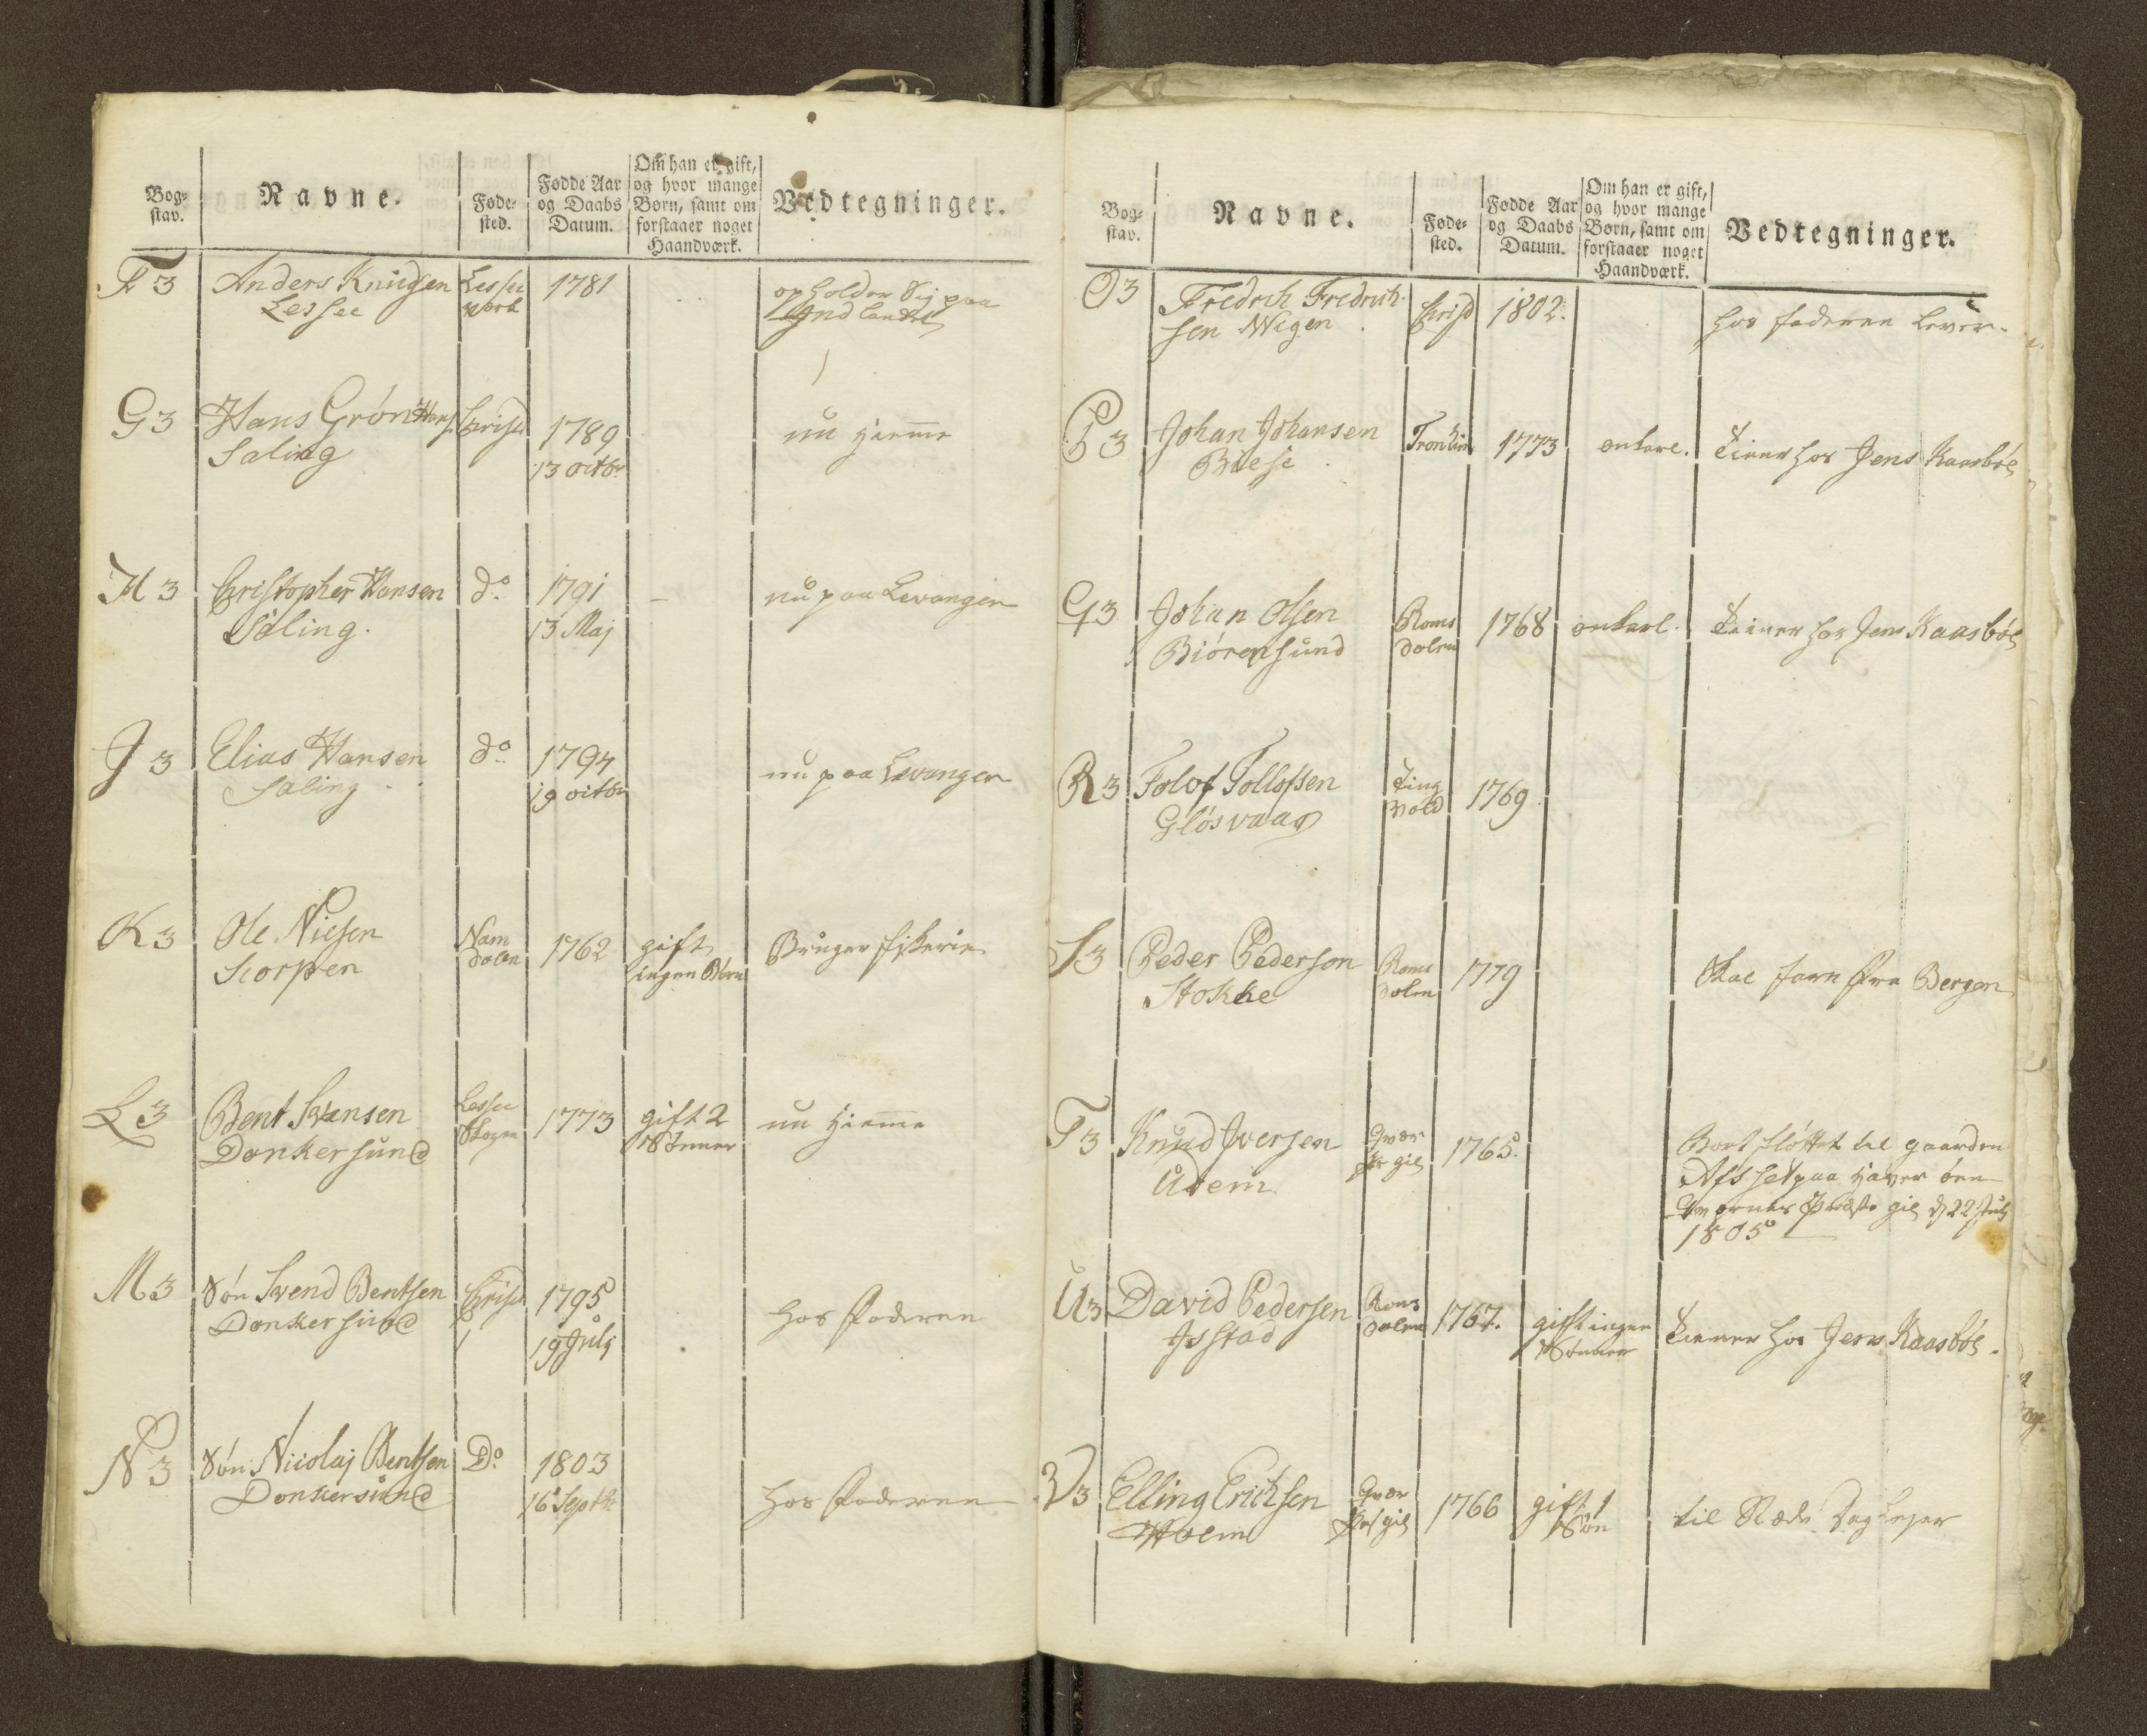 Bog-
stav.
Navne.
Føde-
sted.
Fødde Aar
og Daabs
Datum.
Om han er gift,
og hvor mange
Børn, samt om
forstaaer noget
Haandværk.
Vedtegninger.
F 3
Anders Knudsen
Lessee
Lessee
værk
1781
opholder Sig paa
Ind landet
G 3
Hans Grøn Hans.
Saling
Christ
1789
13 octbr
nu hiemme
H 3
Christopher Hansen
Saling.
do
1791
13 Maj
nu paa Levangen
J 3
Elias Hansen
Saling
do
1794
19 octbr
nu paa Levangen
K 3
Ole Nielsen
Scorpen
Nam
dalen
1762
gift
ingen Børn
Bruger fiskerie
L 3
Bent Svensen
Donkersund
Lessee
Skogen
1773
gift 2
Sønner
nu hiemme
M 3
Søn Svend Bentsen
Donkersund
Christ
1795
19 July
hos Faderen
N 3
Søn Nicolaj Bentsen
Donkersund
Do
1803
16 Septbr
hos Faderen
Bog-
stav.
Navne.
Føde-
sted.
Fødde Aar
og Daabs
Datum.
Om han er gift,
og hvor mange
Børn, samt om
forstaaer noget
Haandværk.
Vedtegninger.
O 3
Fredrik Fredrich
sen Wigen
Christ
1802.
hos faderen lever.
P 3
Johan Johansen
Buese
Tronhim
1773
onkarl.
Tiener hos Jens Kaasbøl
Q 3
Johan Olsen
Biørensund
Roms
dalen
1768
onkarl.
Tiener hos Jens Kaasbøl
R 3
Tolof Tollofsen
Gløsvaag
Ting
vold
1769
S 3
Peder Pederson
Stokke
Roms
dalen
1779
Skal farn fra Bergen
T 3
Knud Iversen
Udem
Qvær
gil
1765.
Bort fløttet til gaarden
1805
U 3
David Pedersen
Isstad
Roms
dalen
1767.
gift ingen
Sønner
Tiener hos Jens Kaasbøl.
V 3
Elling Erichsen
Hoem
Qvær
gil
1766
gift 1
Søn
til Ræds Dagleyer